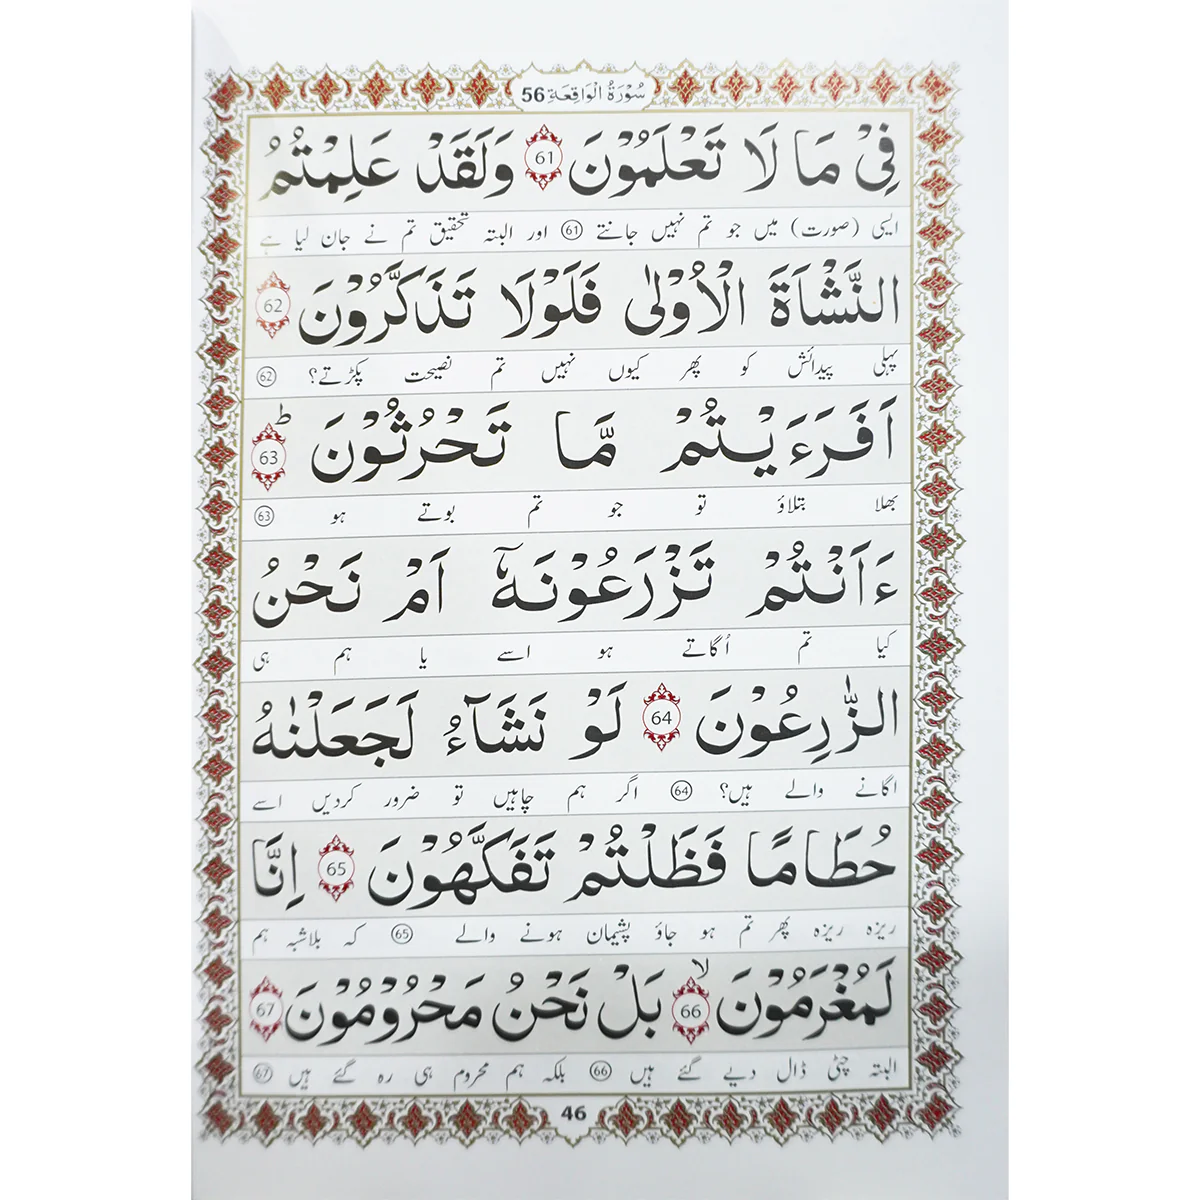 سُوْرَةُ الْوَاقِعَةِ 56
فِیْ مَا لَا تَعْلَمُوْنَ 61 وَلَقَدْ عَلِمْتُمُ
ایسی (صورت) میں جو تم نہیں جانتے 61 اور البتہ تحقیق تم نے جان لیا ہے
النَّشْاَةَ الْاُوْلٰی فَلَوْلَا تَذَكَّرُوْنَ 62
پہلی پیدائش کو پھر کیوں نہیں تم نصیحت پکڑتے؟ 62
اَفَرَءَیْتُمْ مَّا تَحْرُثُوْنَ ؕ 63
بھلا بتلاؤ تو جو تم بوتے ہو 63
ءَاَنْتُمْ تَزْرَعُوْنَهٗۤ اَمْ نَحْنُ
کیا تم اُگاتے ہو اسے یا ہم ہی
الزّٰرِعُوْنَ 64 لَوْ نَشَآءُ لَجَعَلْنٰهُ
اگانے والے ہیں؟ 64 اگر ہم چاہیں تو ضرور کردیں اسے
حُطَامًا فَظَلْتُمْ تَفَكَّهُوْنَ 65 اِنَّا
ریزہ ریزہ پھر تم ہو جاؤ پشیمان ہونے والے 65 کہ بلاشبہ ہم
لَمُغْرَمُوْنَ ۙ 66 بَلْ نَحْنُ مَحْرُوْمُوْنَ 67
البتہ چٹی ڈال دیے گئے ہیں 66 بلکہ ہم محروم ہی رہ گئے ہیں 67
46